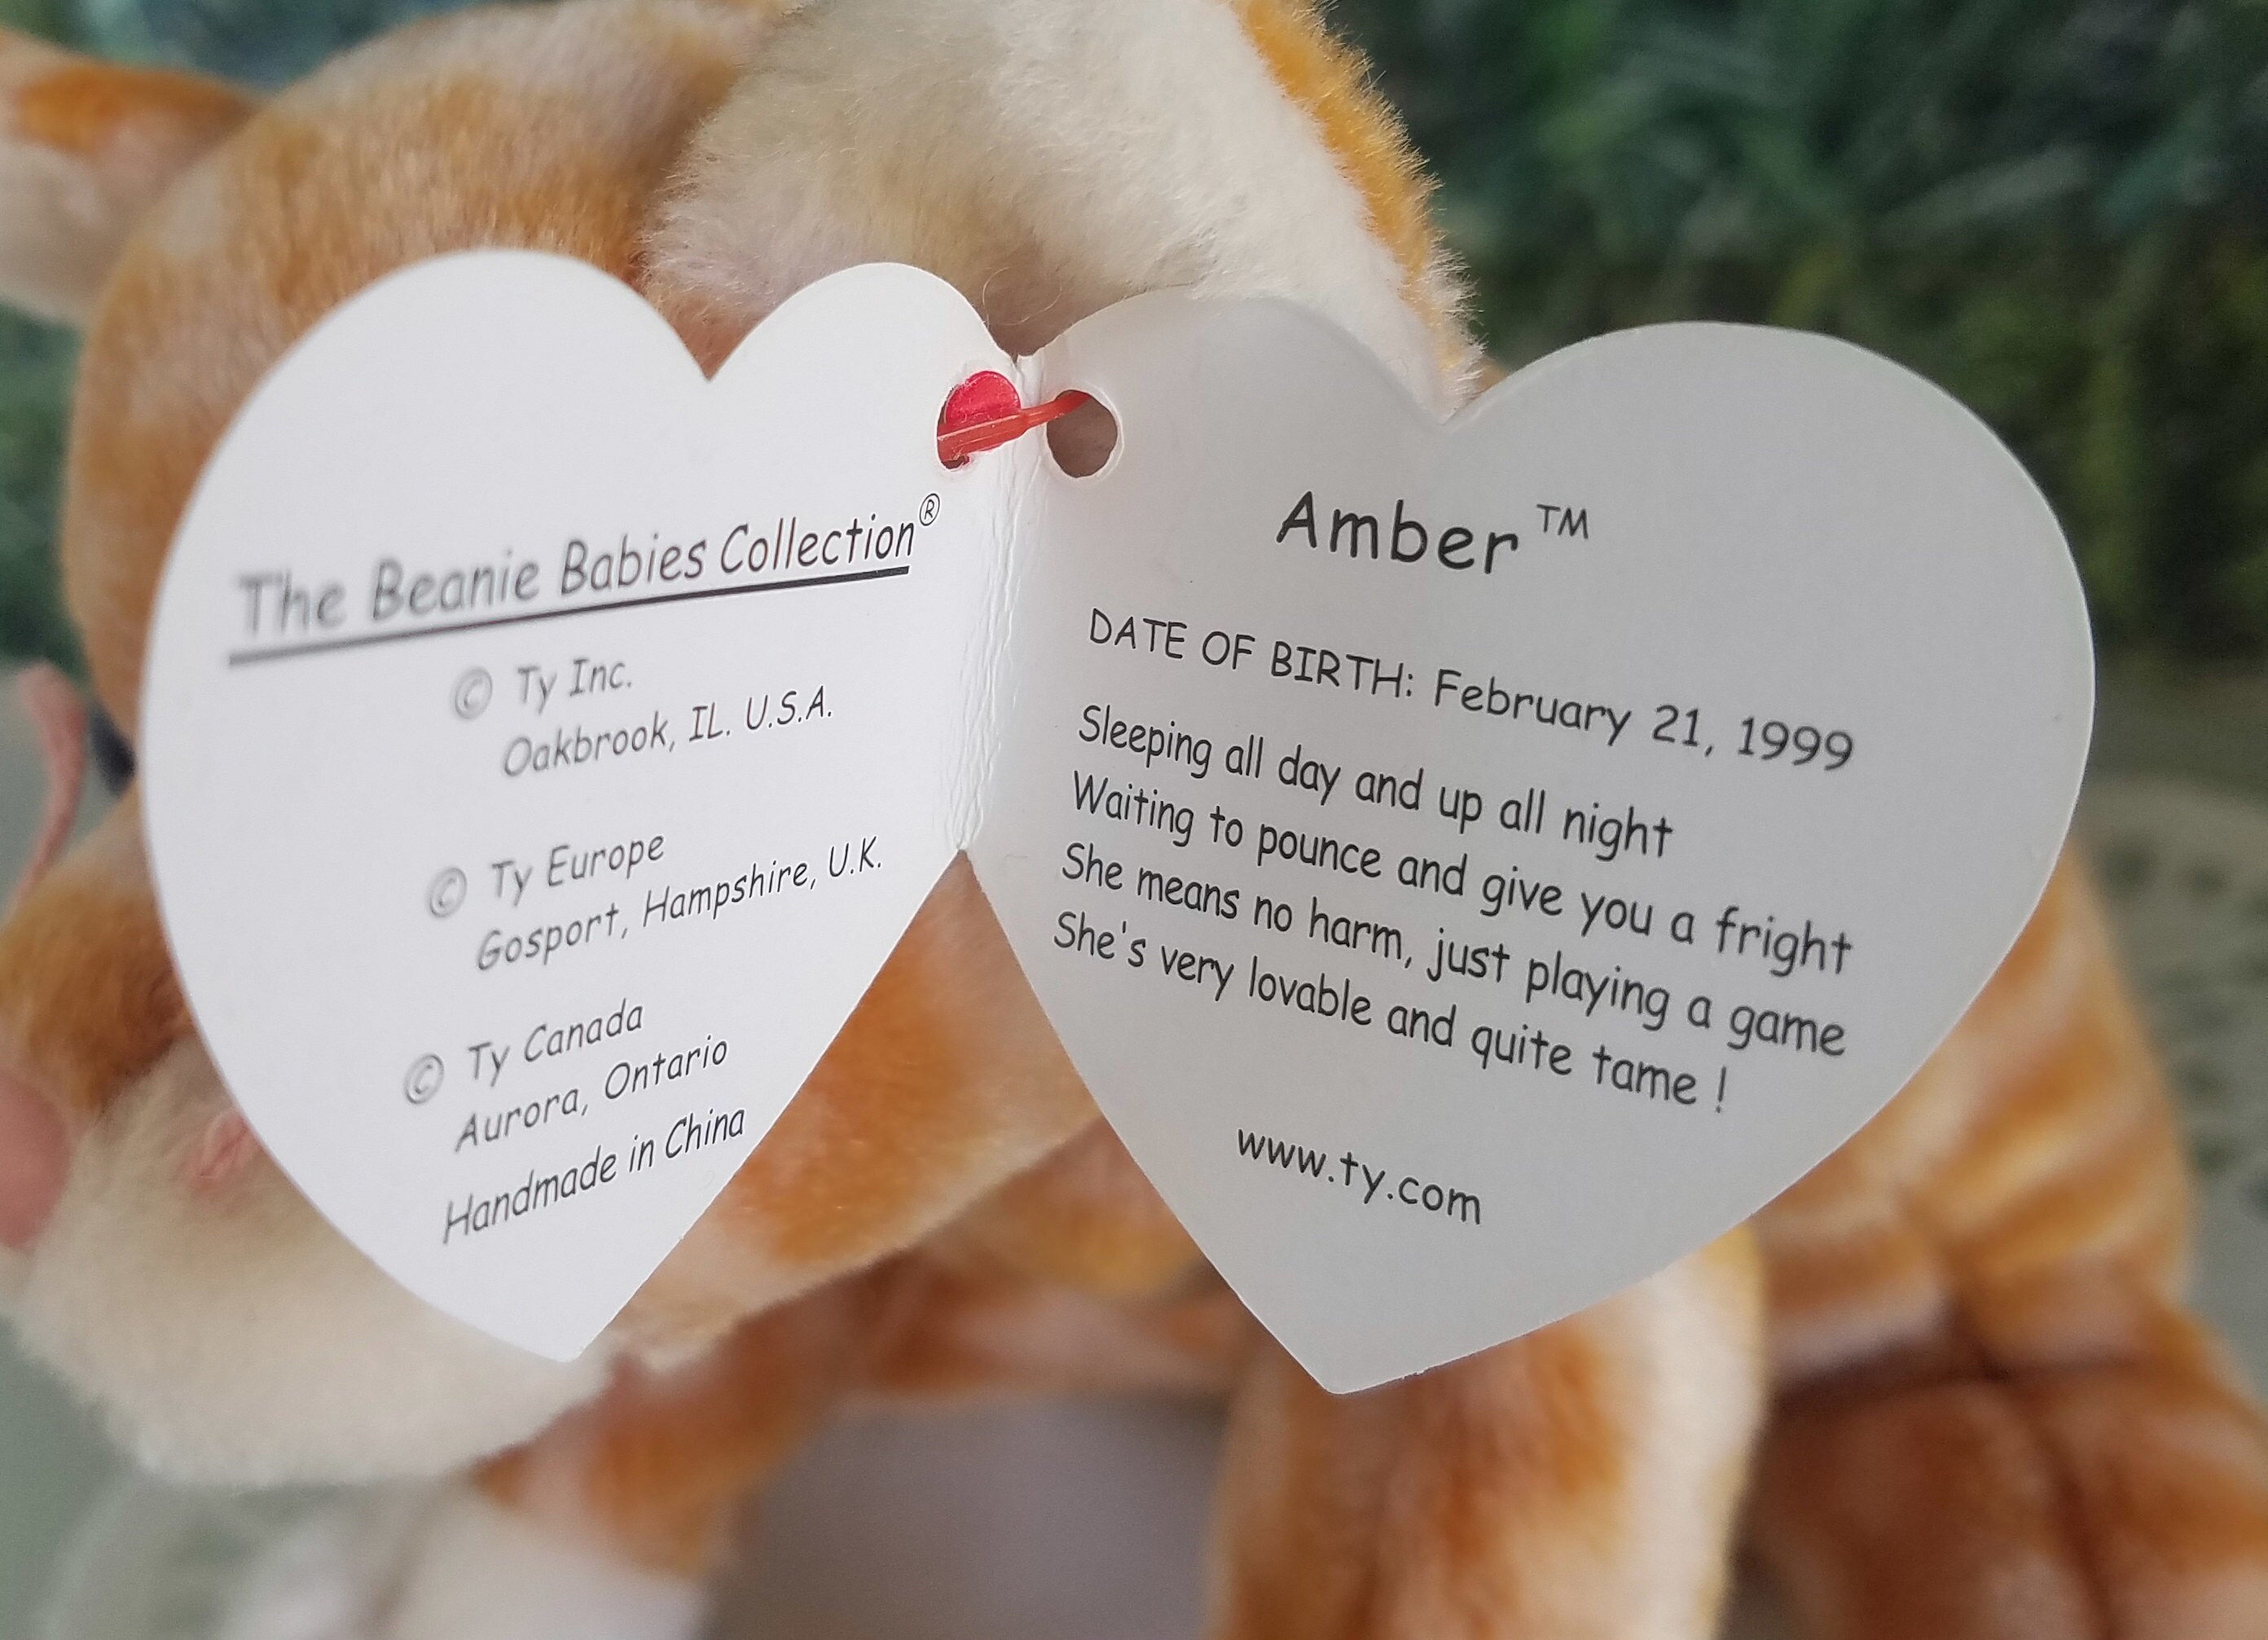 The Beanie Babies Collection®
© Ty Inc.
Oakbrook, IL. U.S.A.
© Ty Europe
Gosport, Hampshire, U.K.
© Ty Canada
Aurora, Ontario
Handmade in China
Amber™
DATE OF BIRTH: February 21, 1999
Sleeping all day and up all night
Waiting to pounce and give you a fright
She means no harm, just playing a game
She's very lovable and quite tame !
www.ty.com